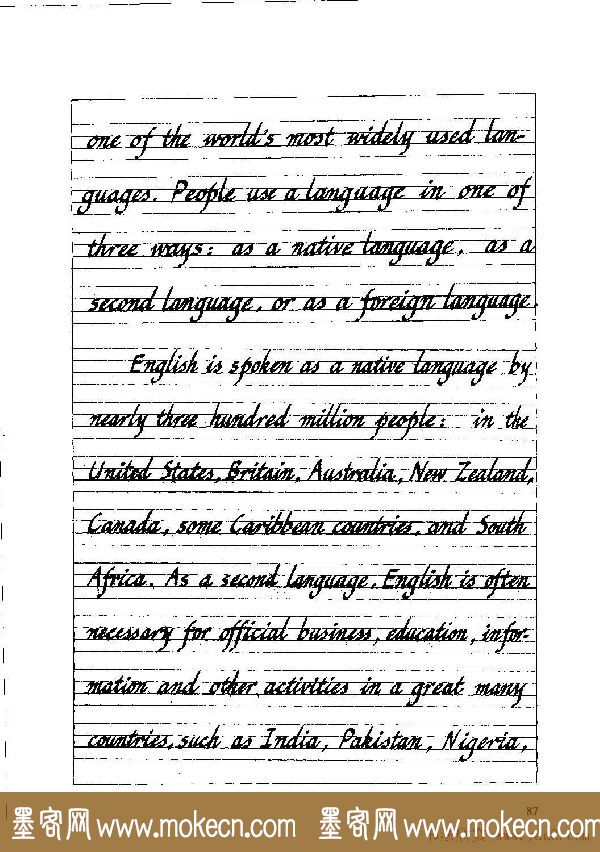 one of the world's most widely used lan-
guages. People use a language in one of
three ways: as a native language, as a
second language, or as a foreign language.
English is spoken as a native language by
nearly three hundred million people: in the
United States, Britain, Australia, New Zealand,
Canada, some Caribbean countries, and South
Africa. As a second language, English is often
necessary for official business, education, infor-
mation and other activities in a great many
countries, such as India, Pakistan, Nigeria,
87
墨客网 www.mokecn.com 墨客网 www.mokecn.com